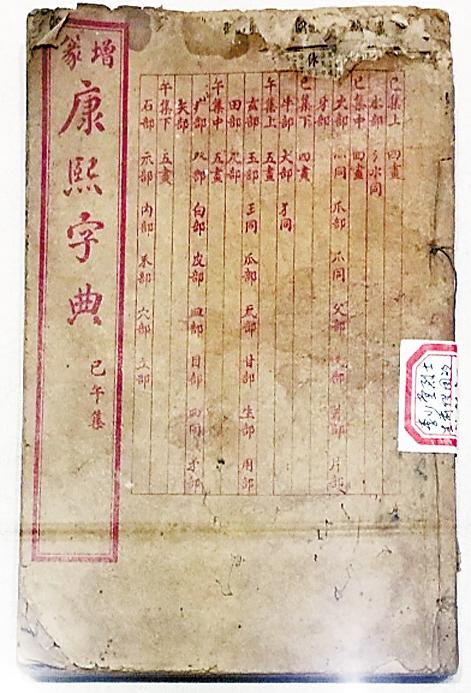 增篆
康熙字典
巳午集
巳集上 四畫
水部 氵水同
巳集中 四畫
火部 灬同 爪部 爫同 父部 爻部 爿部 片部
牙部
巳集下 四畫
牛部 犬部 犭同
午集上 五畫
玄部 玉部 王同 瓜部 瓦部 甘部 生部 用部
田部 疋部
午集中 五畫
疒部 癶部 白部 皮部 皿部 目部 罒同 矛部
矢部
午集下 五畫
石部 示部 禸部 禾部 穴部 立部
烈士